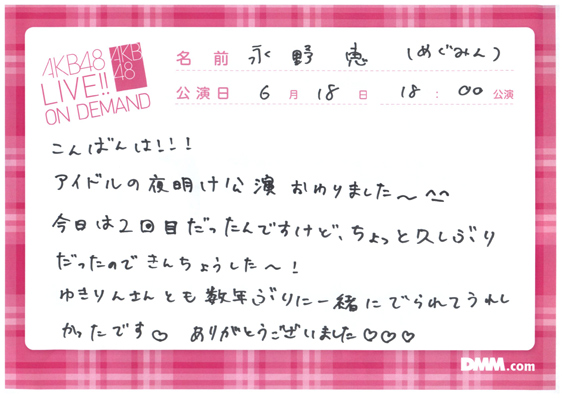 AKB48
LIVE!!
ON DEMAND
AKB
48
名前 永野恵 (めぐみん)
公演日 6月18日 18:00公演
こんばんは!!!
アイドルの夜明け公演 おわりました〜^^
今日は2回目だったんですけど、ちょっと久しぶり
だったのできんちょうした〜!
ゆきりんさんとも数年ぶりに一緒にでられてうれし
かったです♡ ありがとうございました♡♡♡
DMM.com